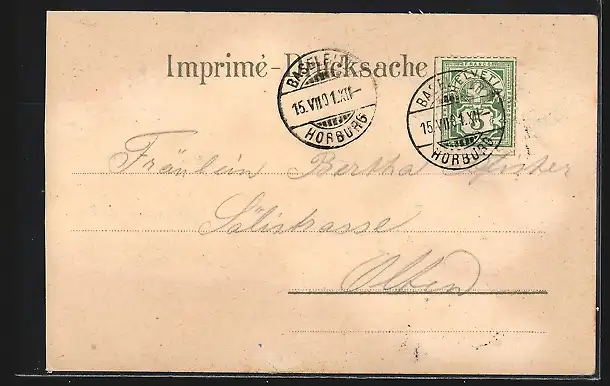 Imprimé-Drucksache
BASEL
15.VII.01.XII-
HORBURG
HELVETIA
FRANCO
5
BASEL
15.VII.01.XII-
HORBURG
Fräulein Bertha
Sälistrasse
Olten